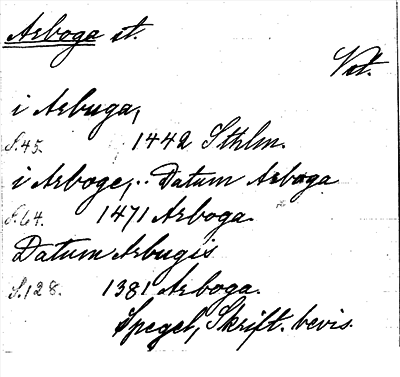 Arboga st.
Vst.
i Arbuga,
S.45. 1442 Sthlm.
i Arboge,.. Datum Arboga
S.64. 1471 Arboga.
Datum Arbugis
S.128. 1381 Arboga.
Spegel, Skrift. bevis.